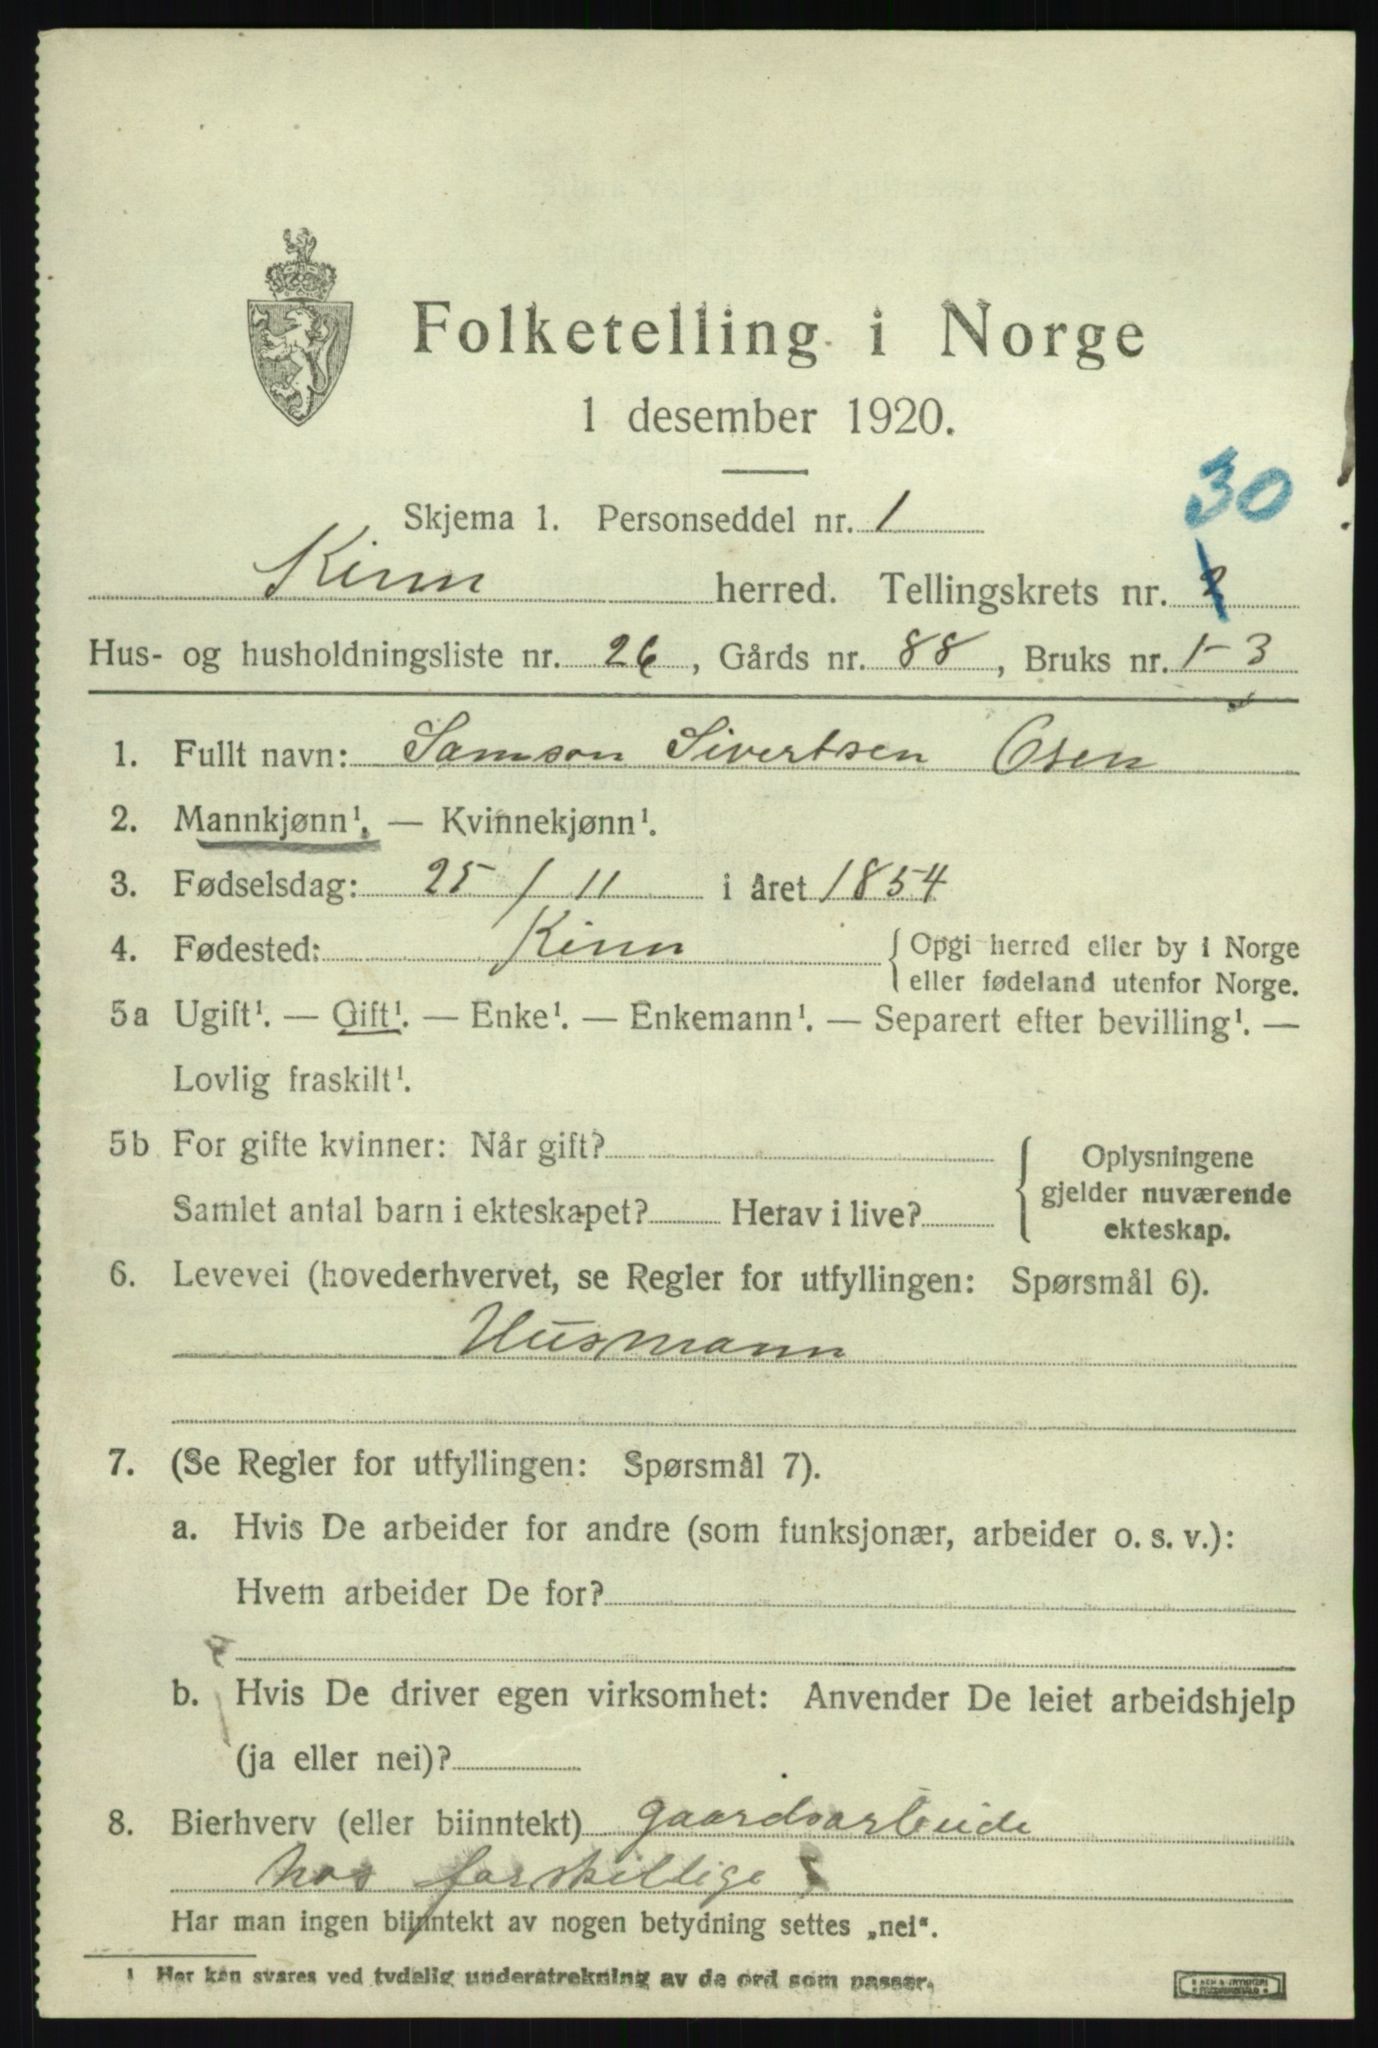 Folketelling i Norge
1 desember 1920.
30
Skjema 1. Personseddel nr. 1
Kinn herred. Tellingskrets nr.
Hus- og husholdningsliste nr. 26, Gårds nr. 88, Bruks nr. 1-3
1. Fullt navn: Samson Sivertsen Osen
2. Mannkjønn¹. — Kvinnekjønn¹.
3. Fødselsdag: 25 / 11 i året 1854
4. Fødested: Kinn { Opgi herred eller by i Norge
eller fødeland utenfor Norge.
5a Ugift¹. — Gift¹. — Enke¹. — Enkemann¹. — Separert efter bevilling¹. —
Lovlig fraskilt¹.
5b For gifte kvinner: Når gift?
Samlet antal barn i ekteskapet? Herav i live?
Oplysningene
gjelder nuværende
ekteskap.
6. Levevei (hovederhvervet, se Regler for utfyllingen: Spørsmål 6).
Husmann
7. (Se Regler for utfyllingen: Spørsmål 7).
a. Hvis De arbeider for andre (som funksjonær, arbeider o. s. v.):
Hvem arbeider De for?
b. Hvis De driver egen virksomhet: Anvender De leiet arbeidshjelp
(ja eller nei)?
8. Bierhverv (eller biinntekt) gaardsarbeide
hos forskillige
Har man ingen biinntekt av nogen betydning settes „nei“.
¹ Her kan svares ved tydelig understrekning av de ord som passer.